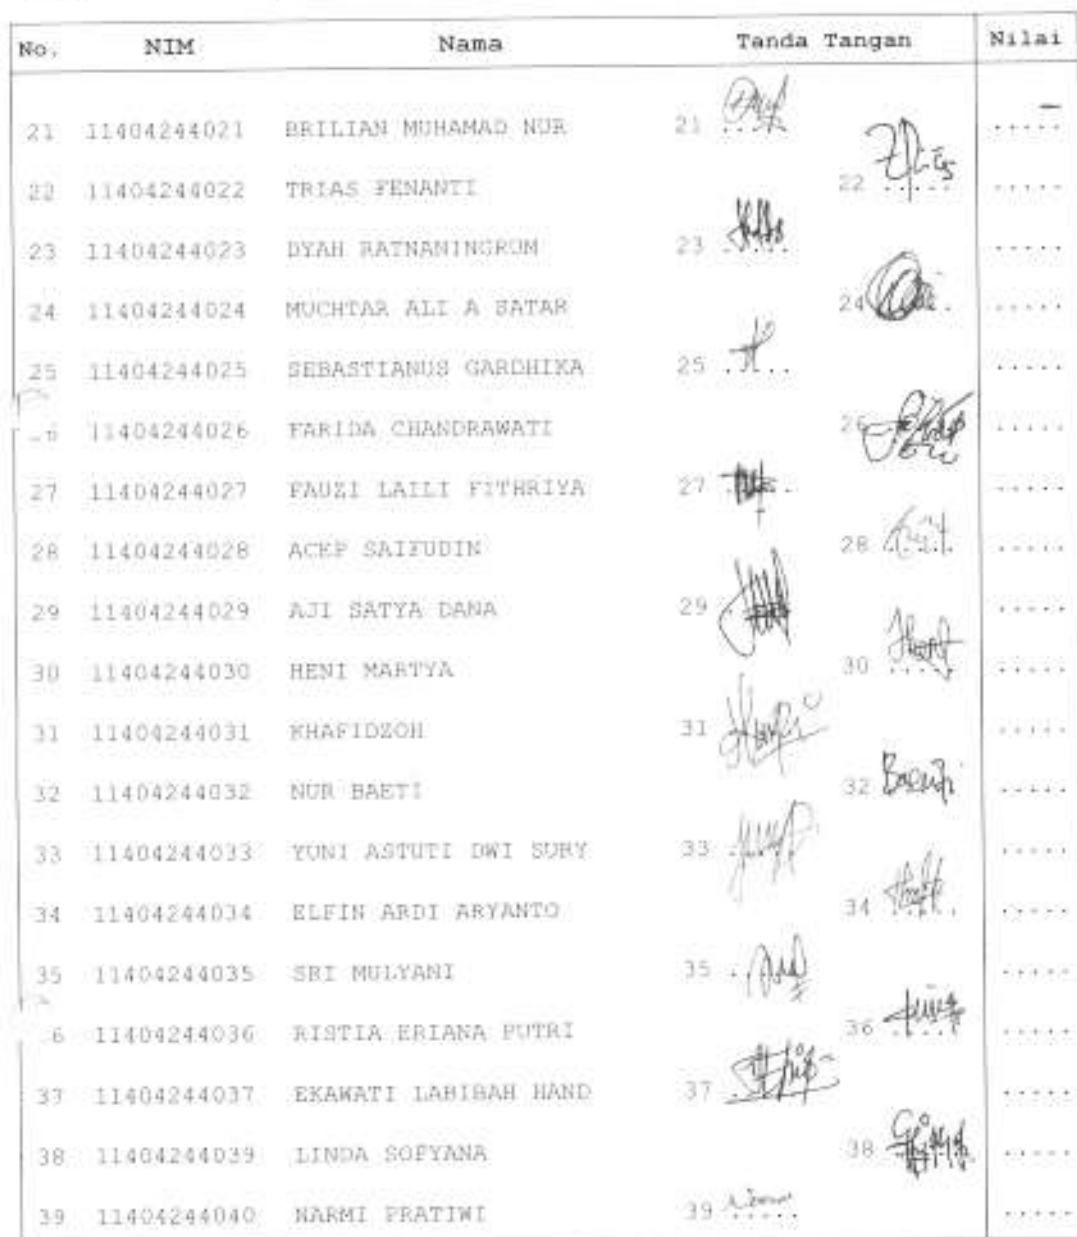 No. NIM Nama Tanda Tangan Nilai
21 11404244021 BRILIAN MUHAMAD NUR 21 ..... .....
22 11404244022 TRIAS FENANTI 22 ..... .....
23 11404244023 DYAH RATNANINGRUM 23 ..... .....
24 11404244024 MUCHTAR ALI A SATAR 24 ..... .....
25 11404244025 SEBASTIANUS GARDHIKA 25 ..... .....
11404244026 FARIDA CHANDRAWATI 26 .....
27 11404244027 FAUZI LAILI FITHRIYA 27 ..... .....
28 11404244028 ACEP SAIFUDIN 28 ..... .....
29 11404244029 AJI SATYA DANA 29 .....
30 11404244030 HENI MARTYA 30 ..... .....
31 11404244031 KHAFIDZOH 31 .....
32 11404244032 NUR BAETI 32 .....
33 11404244033 YUNI ASTUTI DWI SURY 33 .....
34 11404244034 ELFIN ARDI ARYANTO 34 ..... .....
35 11404244035 SRI MULYANI 35 ..... .....
6 11404244036 RISTIA ERIANA PUTRI 36 ..... .....
37 11404244037 EKAWATI LABIBAH HAND 37 .....
38 11404244039 LINDA SOFYANA 38 .....
39 11404244040 NARMI PRATIWI 39 ..... .....